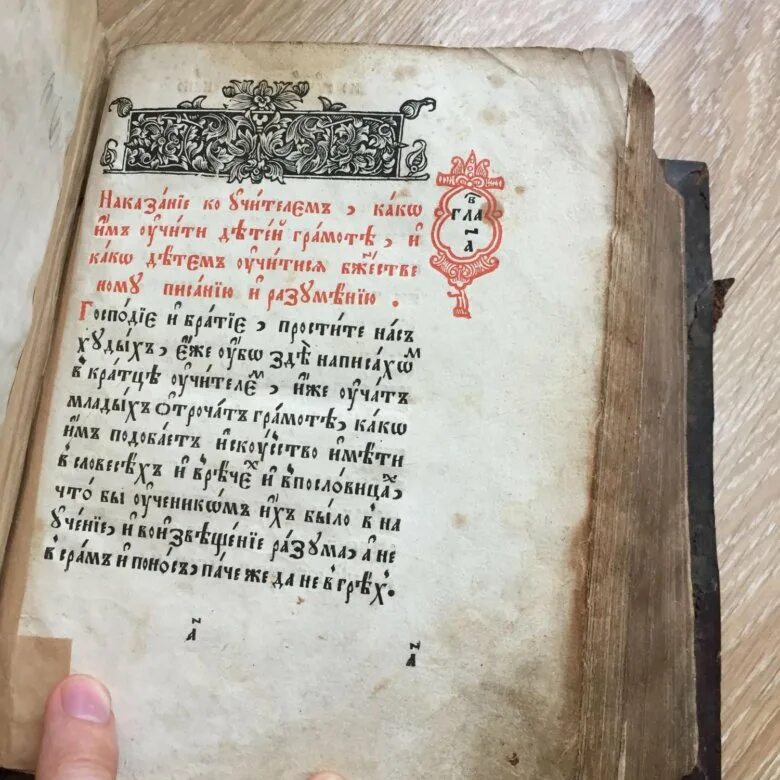 Наказа́нїе ко ᲂу҆чи́телємъ , ка́кѡ
и҆̀мъ ᲂу҆чи́ти дѣте́й гра́мотѣ , и҆
ка́кѡ дѣ́тємъ ᲂу҆чи́тисѧ бж҃е́стве
ному писа́нїю и҆ разꙋмѣ́нїю .
в҃
гла
н
а҃
Госпо́дїє и҆ бра́тїє , прости́те на́съ
хꙋды́хъ , є҆́же ᲂу҆́бѡ здѣ̀ написа́хѡⷨ
в кра́тцѣ ᲂу҆чи́телєⷨ , и҆́же ᲂу҆ча́тъ
млады́хъ ѻ҆троча́тъ гра́мотѣ , ка́кѡ
и҆̀мъ подоба́єтъ и҆скꙋ́сство и҆мѣ́ти
в словесѣ́хъ и҆ в рѣ́чеⷯ и҆ в посло́вицаⷯ ,
что́ бы ᲂу҆ченикѡ́мъ и҆́хъ бы́ло в на
ᲂу҆че́нїе , и҆ во и҆звѣще́нїе ра́зꙋма , а҆ не
в сра́мъ и҆ поно́съ , па́че же да не в грѣ́хъ .
н
а҃
н
а҃